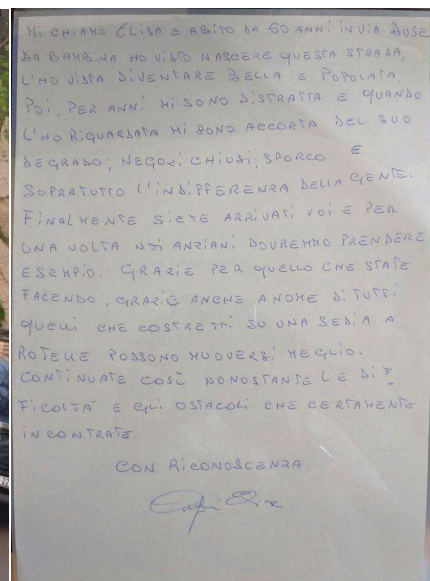 MI CHIAMO ELISA E ABITO DA 60 ANNI IN VIA DUSE
DA BAMBINA HO VISTO NASCERE QUESTA STRADA,
L'HO VISTA DIVENTARE BELLA E POPOLATA.
POI, PER ANNI MI SONO DISTRATTA E QUANDO
L'HO RIGUARDATA MI SONO ACCORTA DEL SUO
DEGRADO; NEGOZI CHIUSI, SPORCO E
SOPRATUTTO L'INDIFFERENZA DELLA GENTE.
FINALMENTE SIETE ARRIVATI VOI E PER
UNA VOLTA NOI ANZIANI DOVREMMO PRENDERE
ESEMPIO. GRAZIE PER QUELLO CHE STATE
FACENDO, GRAZIE ANCHE A NOME DI TUTTI
QUELLI CHE COSTRETTI SU UNA SEDIA A
ROTELLE POSSONO MUOVERSI MEGLIO.
CONTINUATE COSÌ NONOSTANTE LE DIF
FICOLTÀ E GLI OSTACOLI CHE CERTAMENTE
INCONTRATE
CON RICONOSCENZA